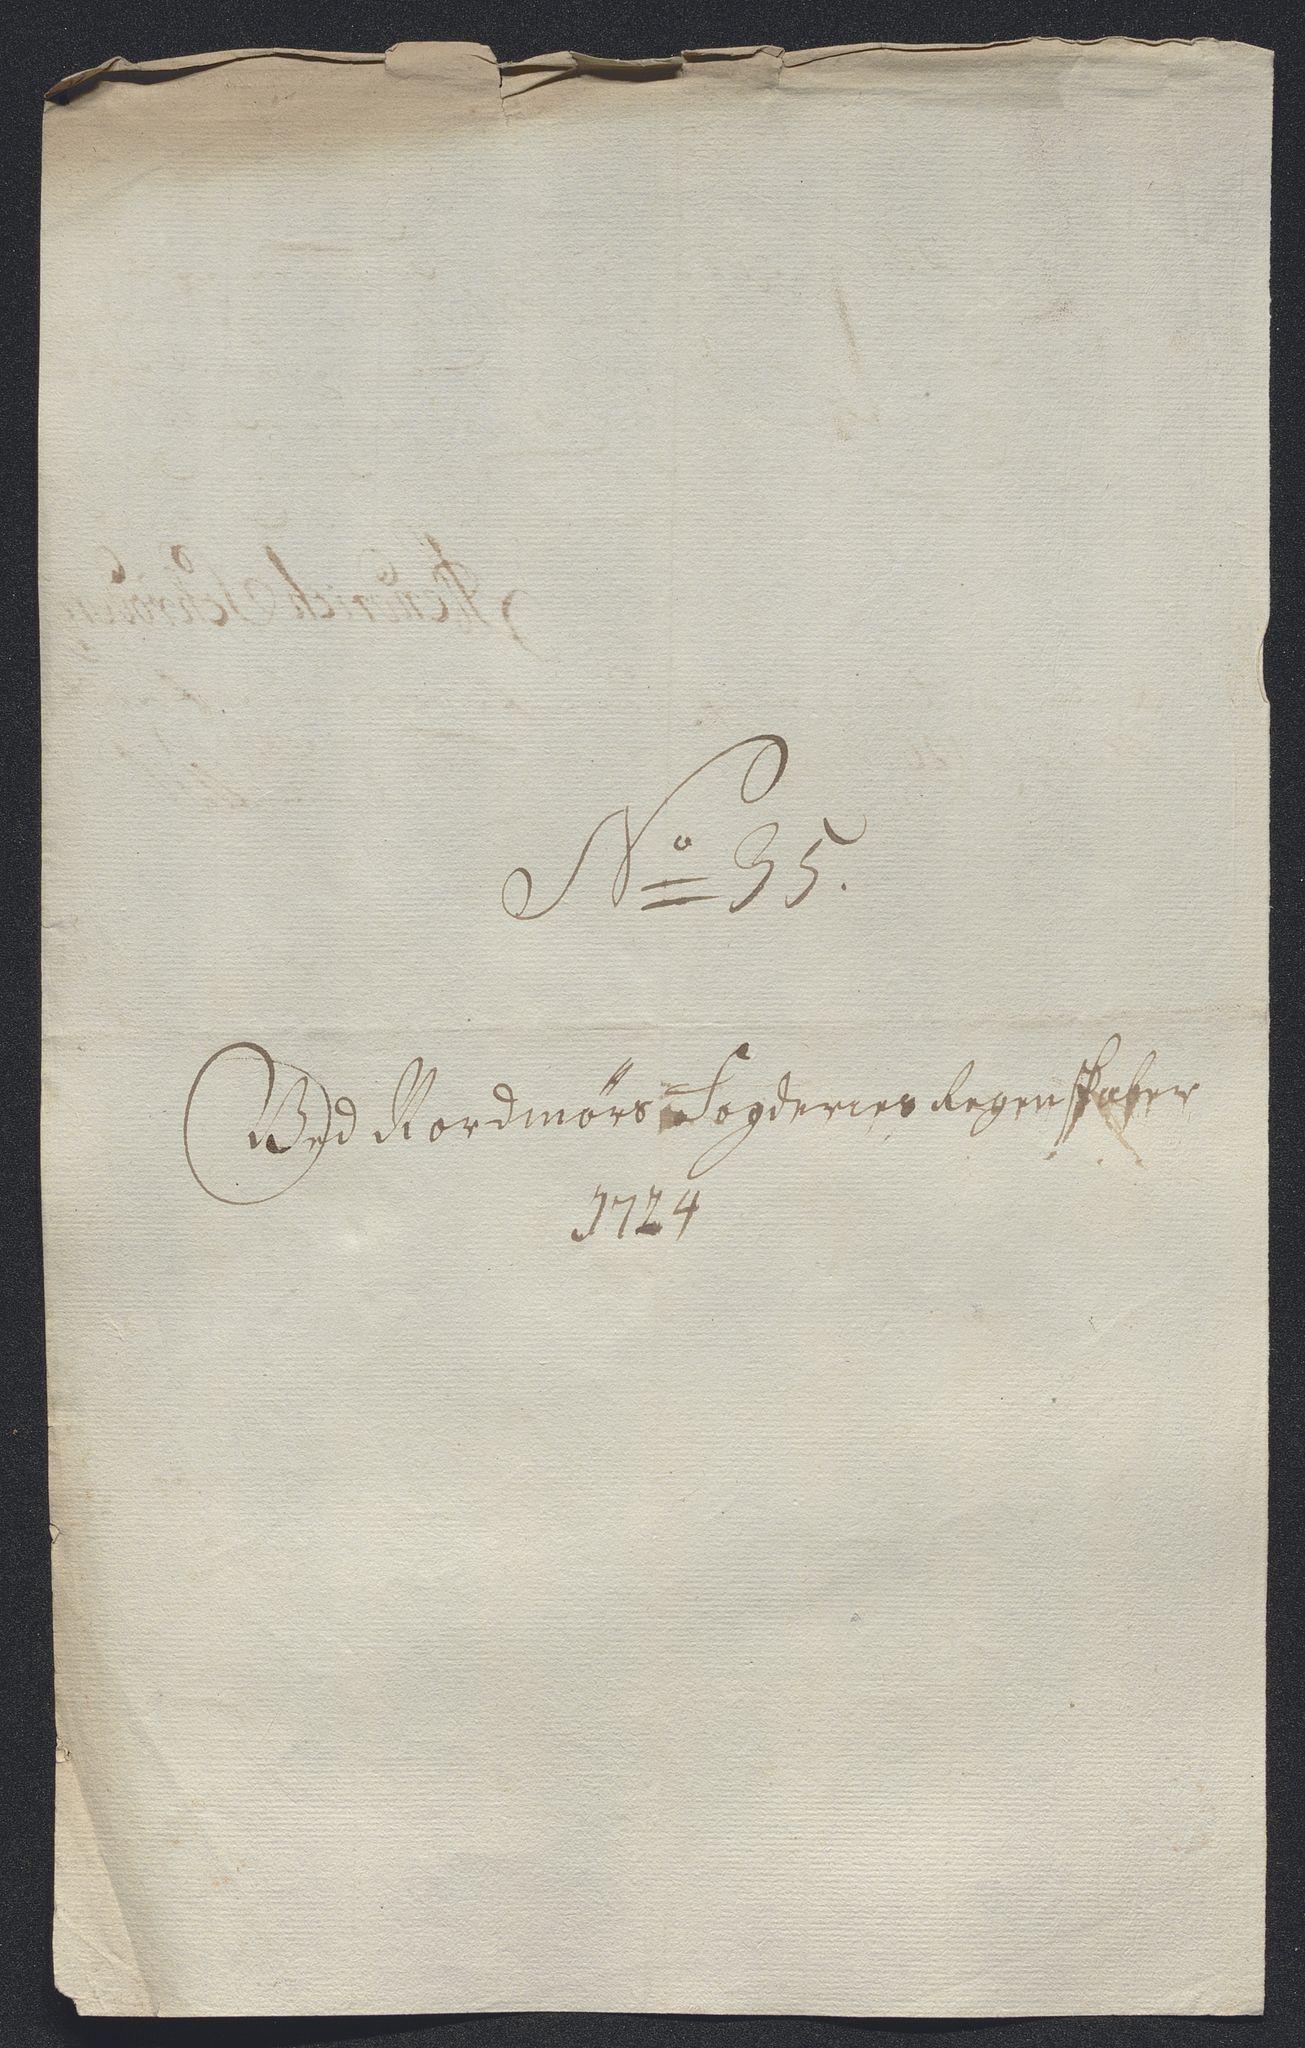 No 35.
Ved Nordmörs Fogderies Regenskaber
1724